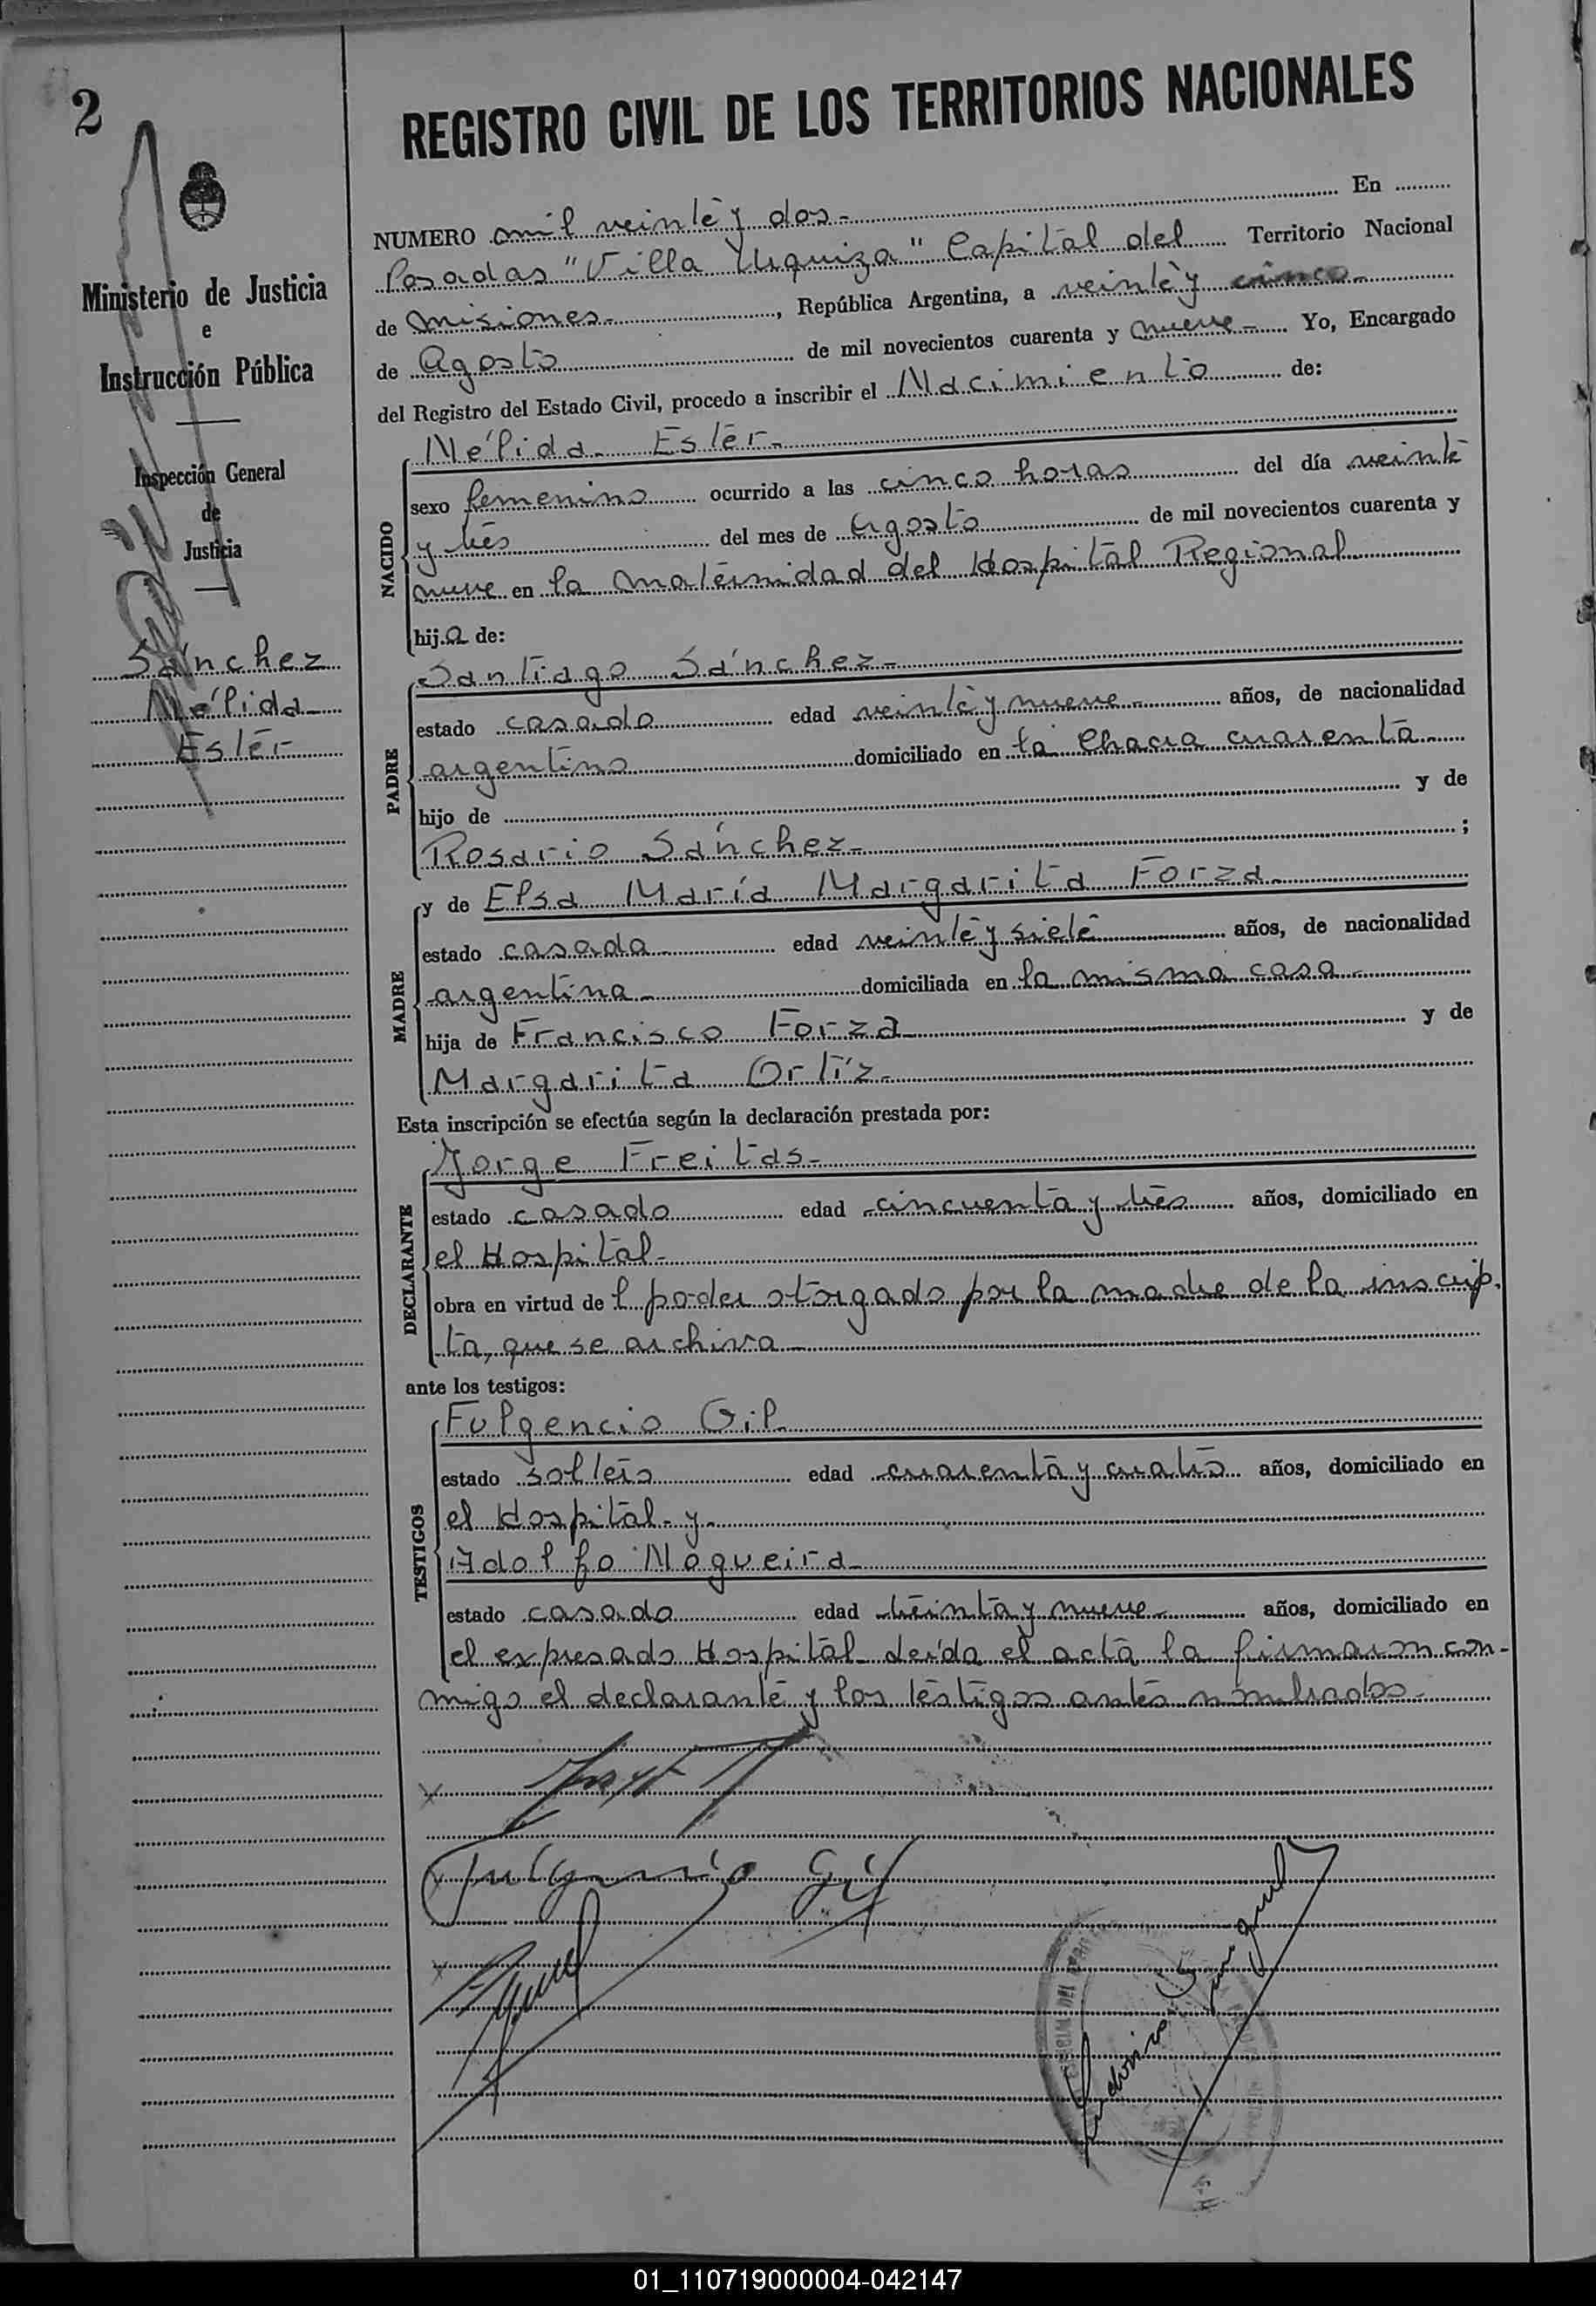 2
REGISTRO CIVIL DE LOS TERRITORIOS NACIONALES
Ministerio de Justicia
e
Instrucción Pública
Inspección General
de
Justicia
Sánchez
Nélida
Ester
NUMERO mil veinte y dos- En
Posadas "Villa Urquiza" Capital del Territorio Nacional
de Misiones-, República Argentina, a veinte y cinco-
de Agosto de mil novecientos cuarenta y nueve- Yo, Encargado
del Registro del Estado Civil, procedo a inscribir el Nacimiento de:
NACIDO
Nélida Ester-
sexo femenino ocurrido a las cinco horas del día veinte
y tres del mes de Agosto de mil novecientos cuarenta y
nueve en la Maternidad del Hospital Regional
hija de:
PADRE
Santiago Sánchez-
estado casado edad veinte y nueve- años, de nacionalidad
argentino domiciliado en la Chacra cuarenta-
hijo de y de
Rosario Sánchez- ;
MADRE
y de Elsa María Margarita Forza-
estado casada edad veinte y siete años, de nacionalidad
argentina- domiciliada en la misma casa-
hija de Francisco Forza y de
Margarita Ortíz-
Esta inscripción se efectúa según la declaración prestada por:
DECLARANTE
Jorge Freitas-
estado casado edad cincuenta y tres años, domiciliado en
el Hospital-
obra en virtud del poder otorgado por la madre de la inscrip-
ta, que se archiva-
ante los testigos:
TESTIGOS
Fulgencio Gil
estado soltero edad cuarenta y cuatro años, domiciliado en
el Hospital- y-
Adolfo Nogueira-
estado casado edad treinta y nueve- años, domiciliado en
el expresado Hospital- leída el acta la firmaron con-
migo el declarante y los testigos antes nombrados-
Fulgencio Gil
01_110719000004-042147